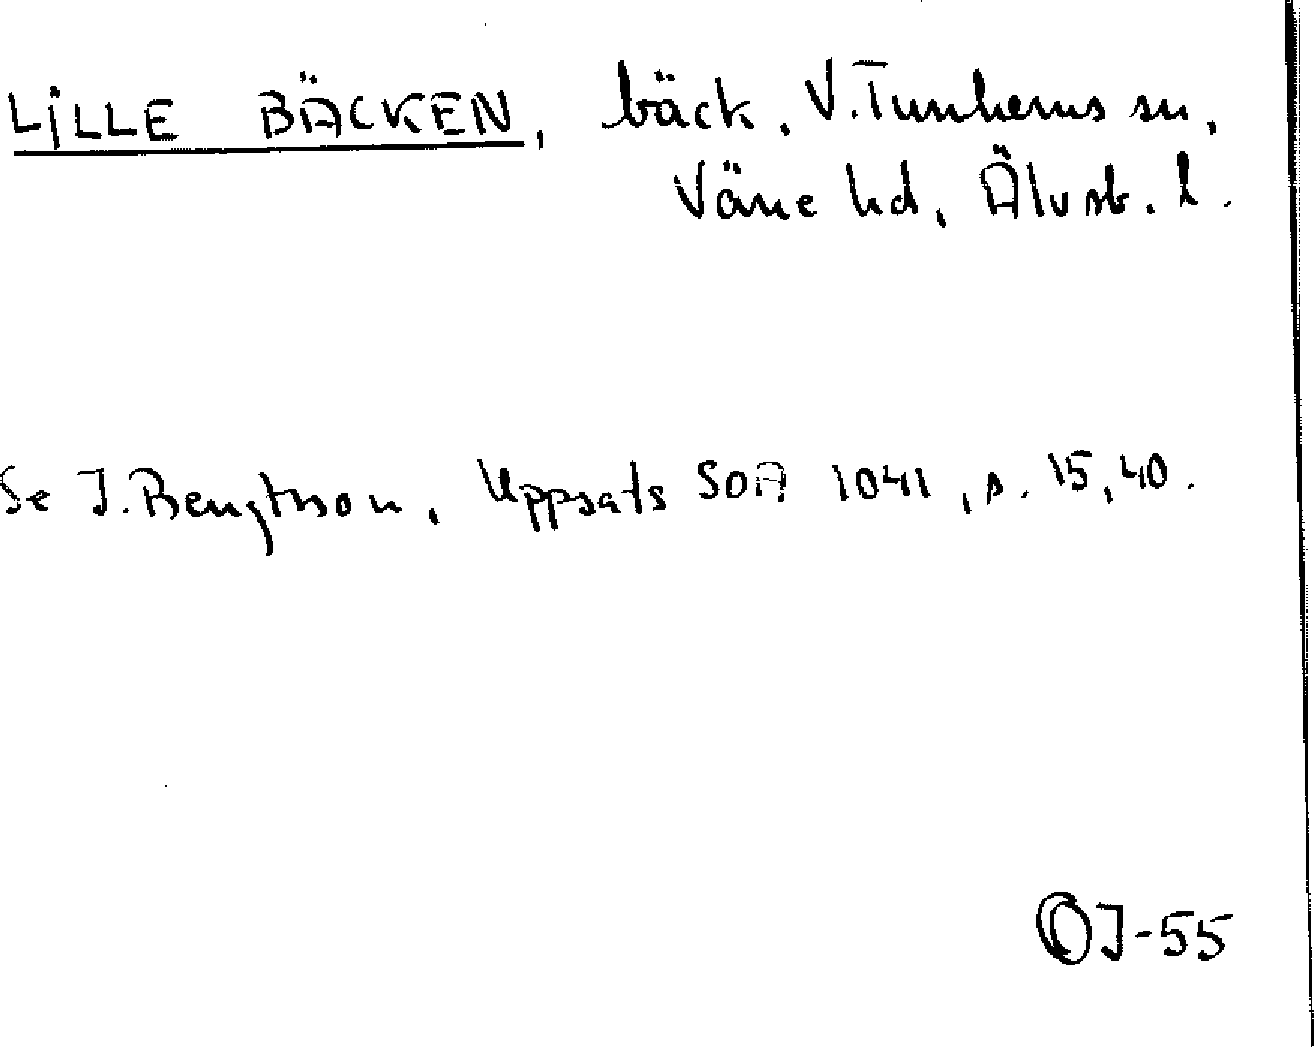 LILLE BÄCKEN, bäck, V. Tunhems sn,
Väne hd, Älvsb. l.
Se J. Bengtsson, Uppsats SOA 1041, s. 15, 40.
OJ-55